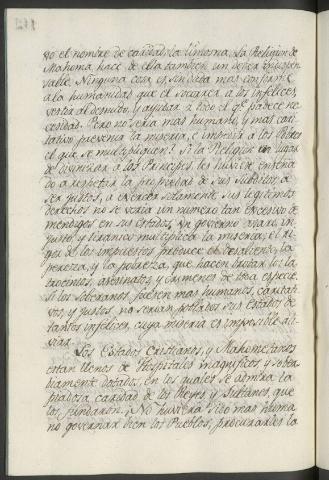 vo el nombre de caridad, la limosna. La Religion de
Mahoma hace de ella tambien un deber indispen
sable. Ninguna cosa es sin duda mas conforme
a la humanidad que el socorrer a los infelices,
vestir al desnudo, y ayudar a todo el qe. padece ne
cesidad. Pero no sería mas humano, y mas cari
tativo prevenir la miseria, e impedir a los Pobres
el que se multipliquen? Si la Religion en lugar
de divinizar a los Principes les huviera enseña
do a respetar la propiedad de sus Subditos, a
ser justos, a exercer solamente sus legitimos
derechos no se vería un numero tan excesivo de
mendigos en sus estados. Un govierno avaro, in
justo, y tiranico multiplica la miseria; el ri
gor de los impuestos produce el desaliento, la
pereza, y la pobreza, que hacen brotar los la
trocinios, asesinatos, y crimenes de toda especie.
Si los Soberanos fuesen mas humanos, caritati
vos, y justos, no serían poblados sus Estados de
tantos infelices cuya miseria es imposible ali
viar.
Los Estados Cristianos, y Mahometanos
estan llenos de Hospitales magnificos, y sober
biamente dotados, en los quales se admira la
piadosa caridad de los Reyes, y Sultanes, que
los fundaron. ¿No huviera sido mas huma
no governar bien los Pueblos, procurandoles la